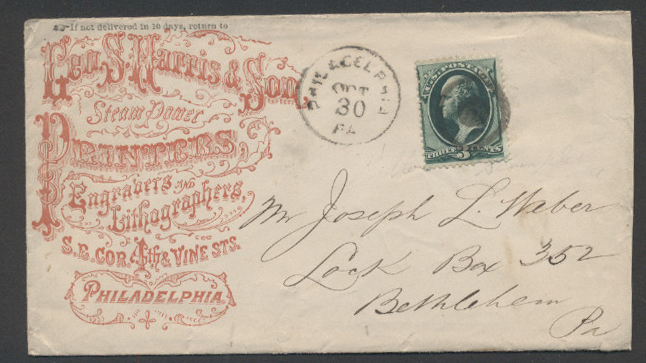 If not delivered in 10 days, return to
Geo. S. Harris & Son
Steam Power
Printers
Engravers AND
Lithographers,
S.E. COR. 4th & VINE STS.
PHILADELPHIA
PHILADELPHIA
OCT
30
PA.
U.S. POSTAGE
THREE 3 CENTS
Mr Joseph L. Weber
Lock Box 352
Bethlehem
Pa